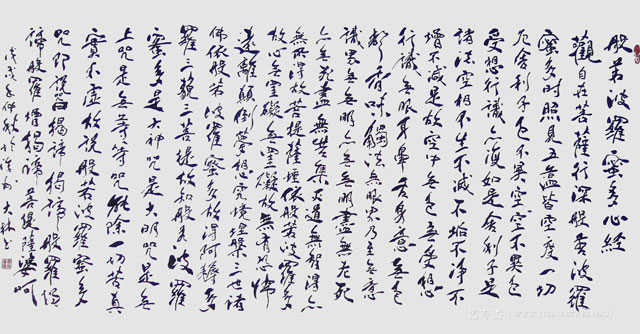 般若波羅蜜多心經
觀自在菩薩行深般若波羅
蜜多時照見五蘊皆空度一切
厄舍利子色不異空空不異色
受想行識亦復如是舍利子是
諸法空相不生不滅不垢不淨不
增不減是故空中無色無受想
行識無眼耳鼻舌身意無色
聲香味觸法無眼界乃至無意
識界無無明亦無無明盡無老死
亦無老死盡無苦集滅道無智亦無得
無所得故菩提薩埵依般若波羅蜜多
故心無罣礙無罣礙故無有恐怖
遠離顛倒夢想究竟涅槃三世諸
佛依般若波羅蜜多故得阿耨多
羅三藐三菩提故知般若波羅
蜜多是大神咒是大明咒是無
上咒是無等等咒能除一切苦真
實不虛故說般若波羅蜜多
咒即說咒曰揭諦揭諦般羅揭
諦般羅僧揭諦菩提薩婆呵